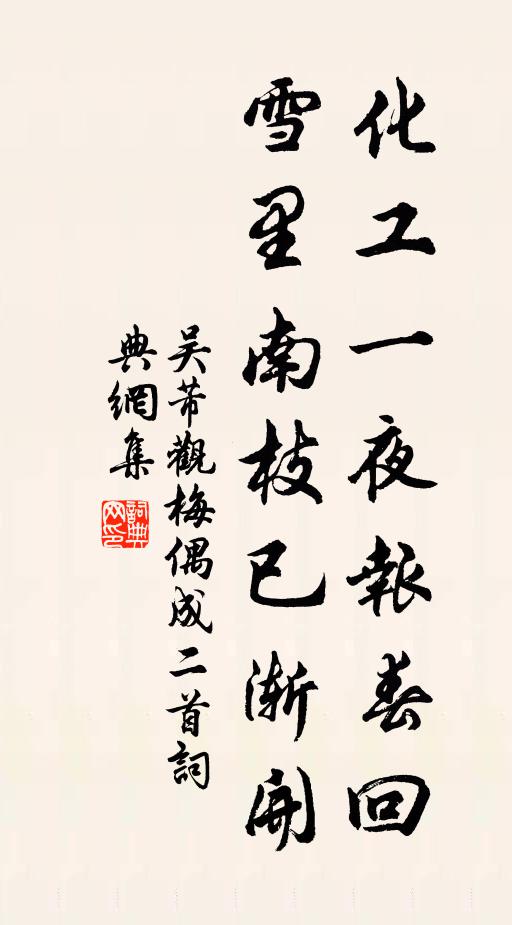 化工一夜報春回
雪里南枝已漸開
吳芾觀梅偶成二首詞
典網集
詞典网印